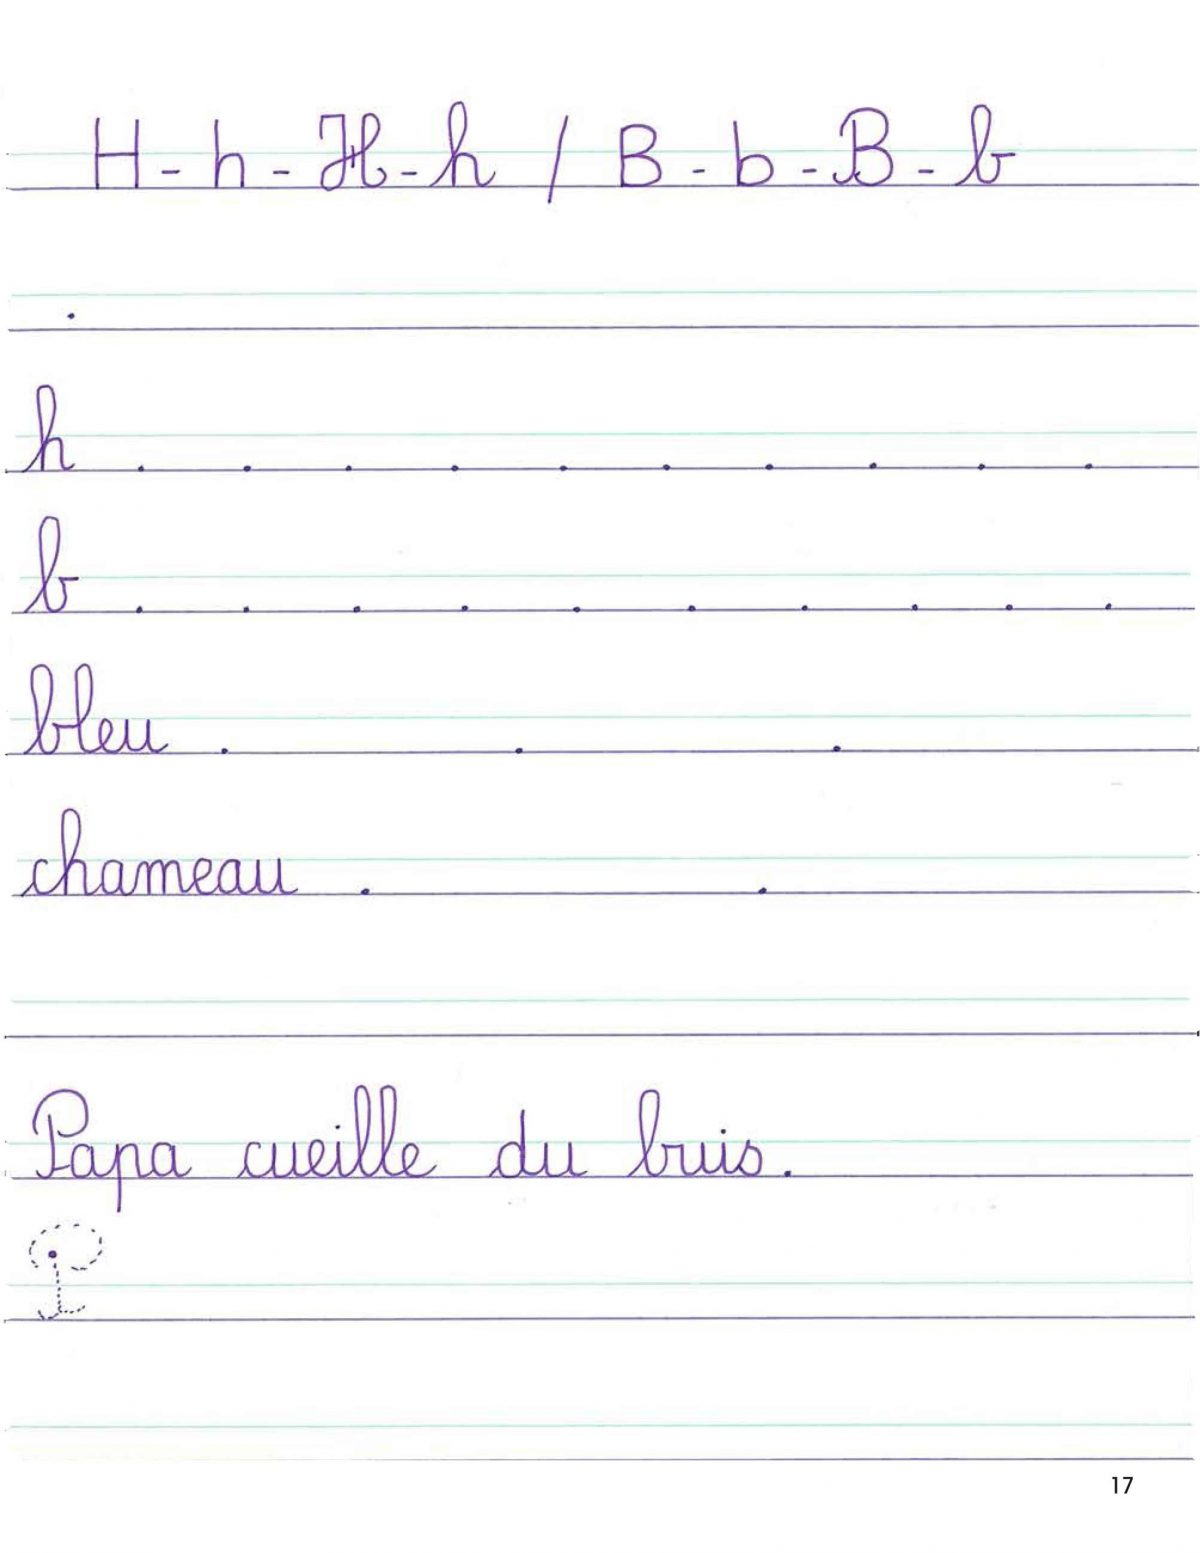 H - h - H - h / B - b - B - b
.
h . . . . . . . . . .
b . . . . . . . . . .
bleu . . .
chameau . .
Papa cueille du buis.
P
17